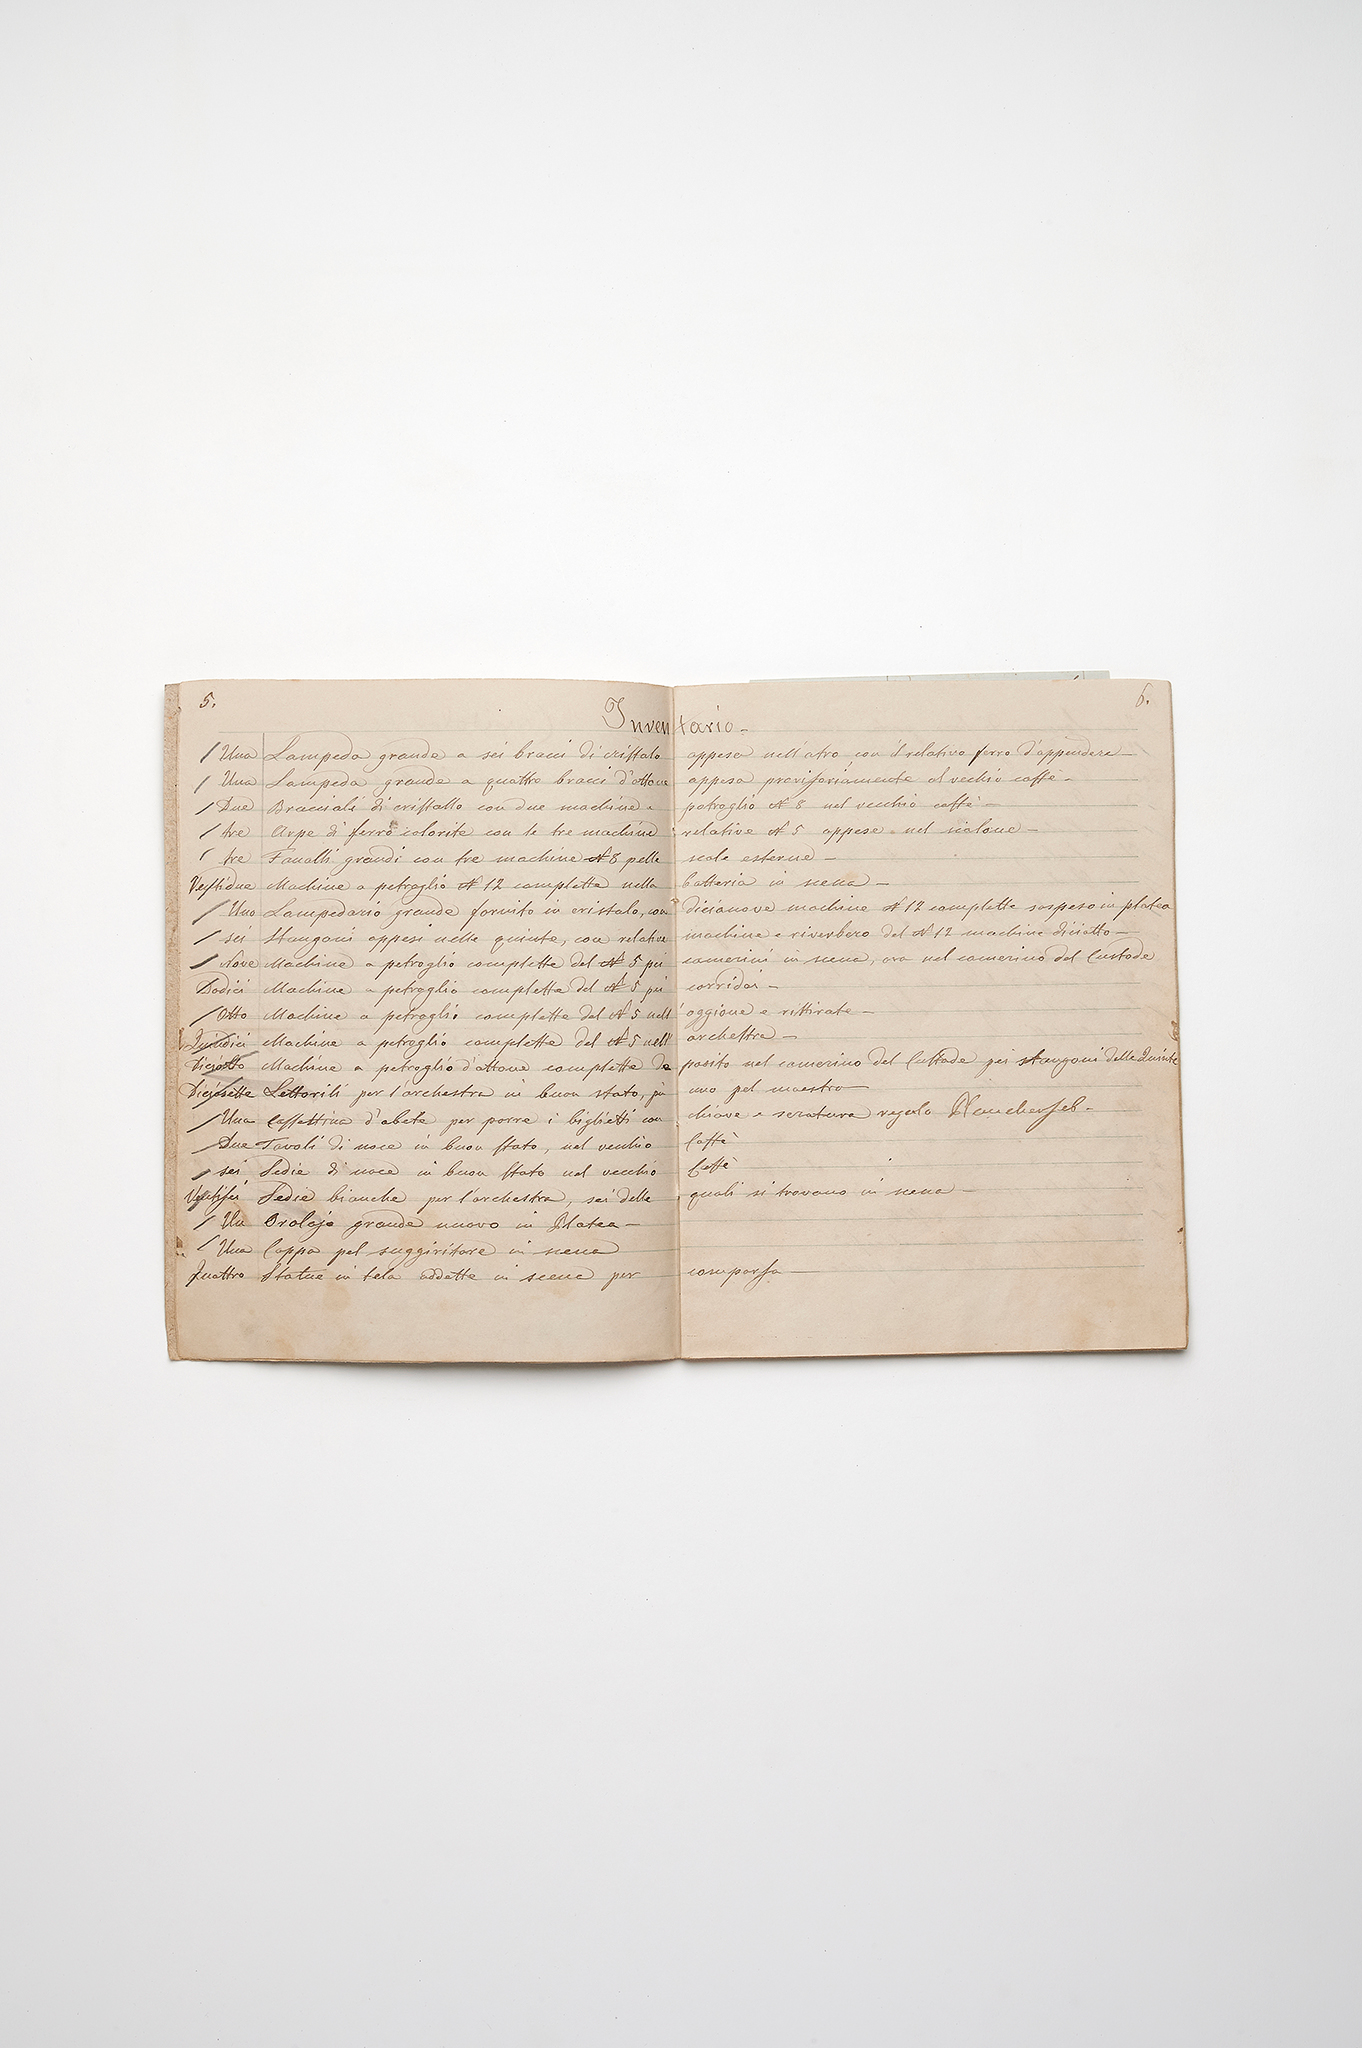 5.
6.
Inventario.
Una Lampeda grande a sei bracci di cristalo appesa nell'atro, con il relativo ferro d'appendere
Una Lampeda grande a quattro bracci d'ottone appesa provisoriamente al vechio caffè
Due Bracciali di cristallo con due machine a petroglio N 8 nel vechio caffè
tre Arpe di ferro colorite con le tre machine relative N 5 appese nel salone
tre Fanalli grandi con tre machine N 8 pelle scale esterne
Ventidue Machine a petroglio N 12 complette nella batteria in scena
Uno Lampedario grande fornito in cristalo, con dicianove machine N 12 complette sospeso in platea
sei Stangoni appesi nelle quinte, con relative machine e riverbero del N 12 machine diciotto
Nove Machine a petroglio complette del N 5 pei camerini in scena, ora nel camerino del Custode
Dodici Machine a petroglio complette del N 5 pei corridoi
Otto Machine a petroglio complette del N 5 nell oggione e rittirate
Quindici Machine a petroglio complette del N 5 nell archestra
Diciotto Machine a petroglio d'ottone complette de posito nel camerino del Custode pei stangoni delle Quinte
Diciasette Lettorili per l'archestra in buon stato, più uno pel maestro
Una Cassettina d'abete per porre i biglietti con chiave e seratura regalo
Due Tavoli di noce in buon stato, nel vechio Caffè
sei Sedie di noce in buon stato nel vecchio Caffè
Ventisei Sedie bianche per l'archestra, sei delle quali si trovano in scena
Un Orologio grande nuovo in Platea
Una Cappa pel suggiritore in scena
Quattro Statue in tela addette in scene per comparsa